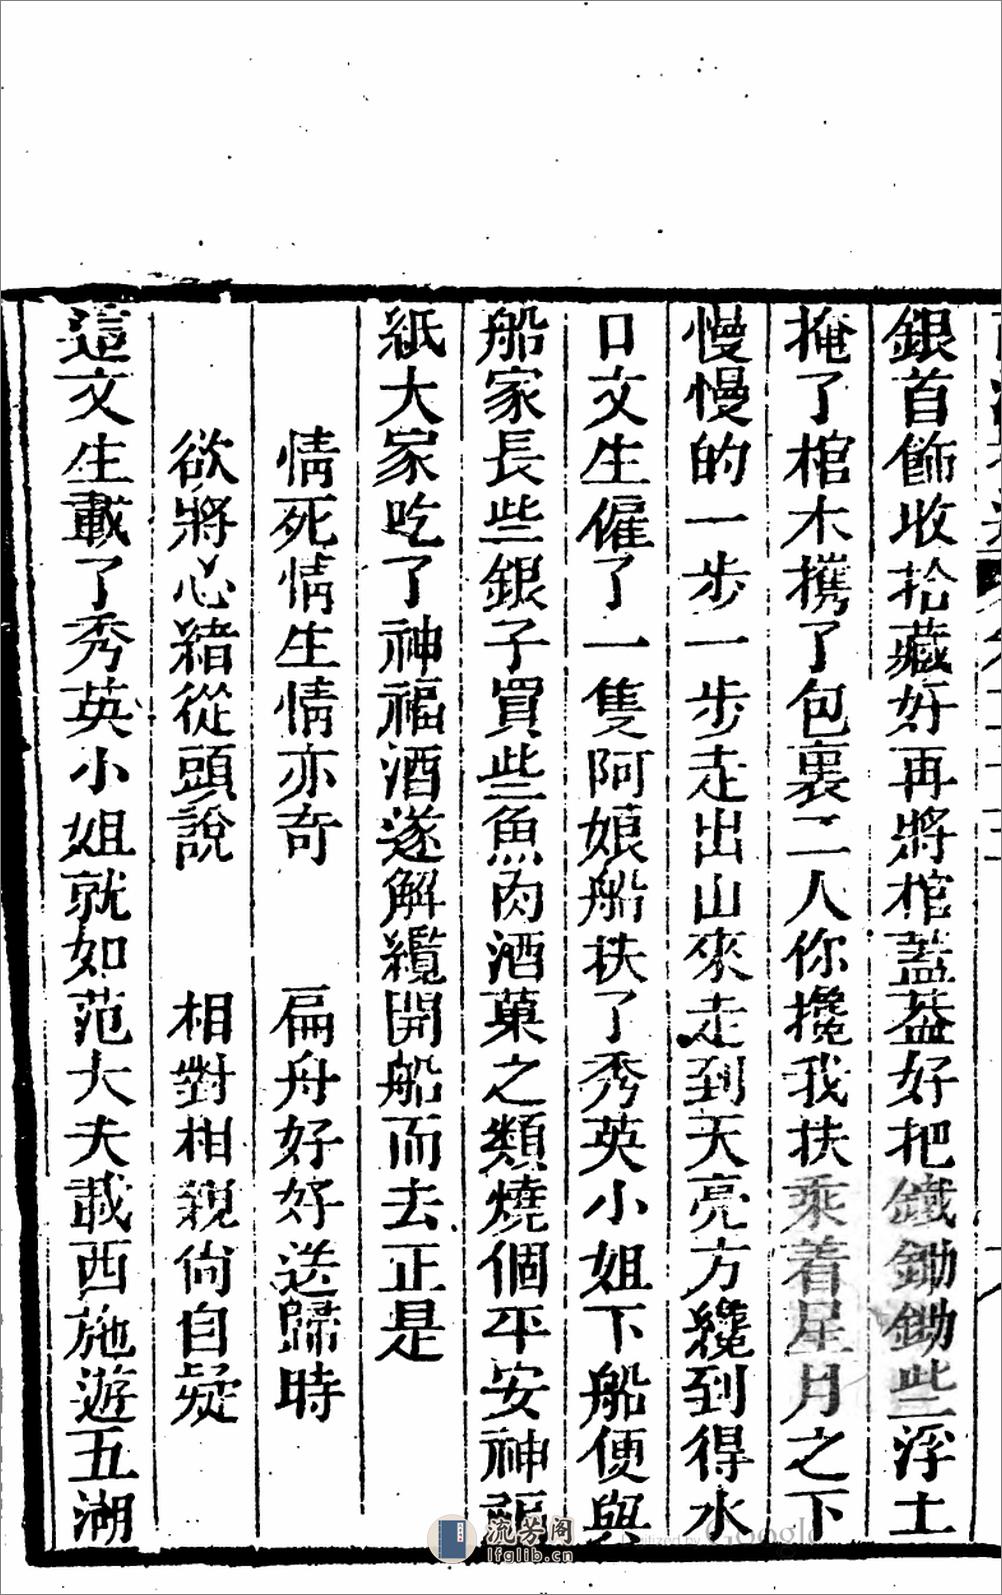 銀首飾收拾藏好再將棺蓋蓋好把鐵鋤鋤些浮土
掩了棺木攜了包裹二人你攙我扶乘着星月之下
慢慢的一步一步走出山來走到天亮方纔到得水
口文生僱了一隻阿娘船扶了秀英小姐下船便與
船家長些銀子買些魚肉酒菓之類燒個平安神福
紙大家吃了神福酒遂解纜開船而去正是
情死情生情亦奇 扁舟好好送歸時
欲將心緒從頭說 相對相親尙自疑
這文生載了秀英小姐就如范大夫載西施遊五湖
流芳阁
lfglib.cn
Digitized by Google